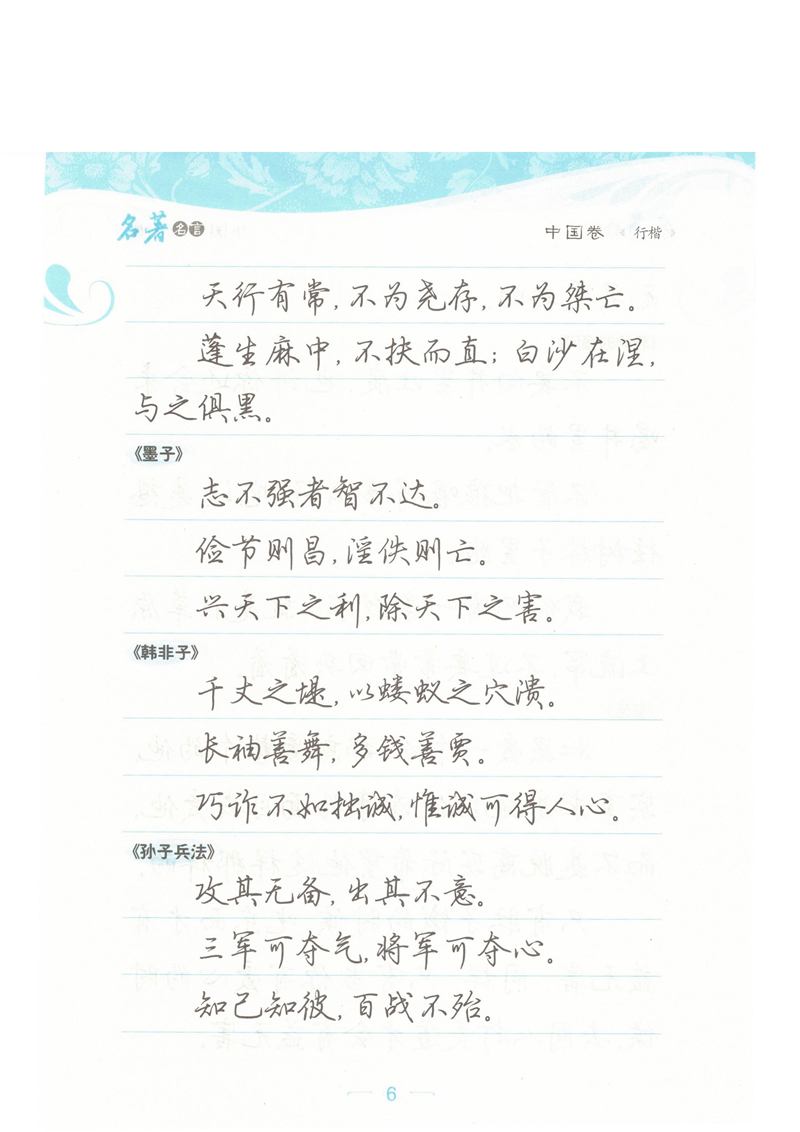 名著名言
中国卷 行楷
天行有常,不为尧存,不为桀亡。
蓬生麻中,不扶而直;白沙在涅,
与之俱黑。
《墨子》
志不强者智不达。
俭节则昌,淫佚则亡。
兴天下之利,除天下之害。
《韩非子》
千丈之堤,以蝼蚁之穴溃。
长袖善舞,多钱善贾。
巧诈不如拙诚,惟诚可得人心。
《孙子兵法》
攻其无备,出其不意。
三军可夺气,将军可夺心。
知己知彼,百战不殆。
6